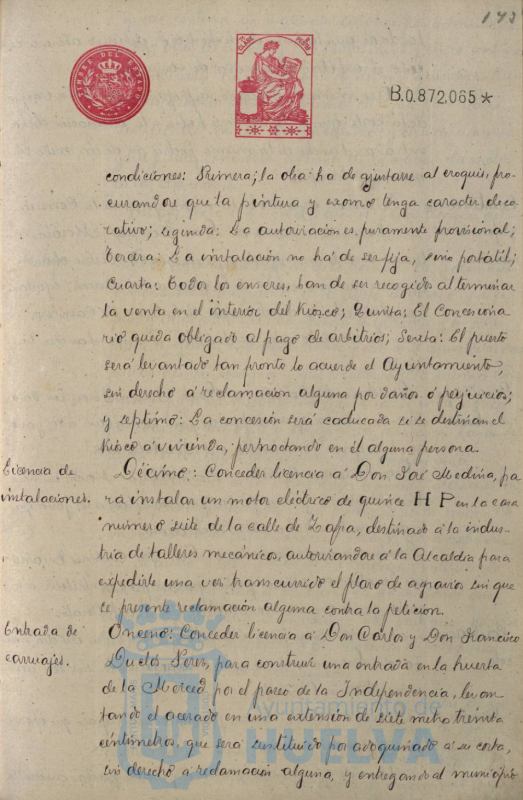 143
TIMBRE DEL ESTADO
B.0.872,065*
condiciones: Primera; la obra ha de ajustarse al croquis, pro-
curandose que la pintura y exorno tenga caracter deco-
rativo; segunda: La autorización es puramente provisional;
Tercera: La instalación no há de ser fija, sino portátil;
Cuarta: Todos los enseres, han de ser recogidos al terminar
la venta en el interior del Kiosco; Quinta: El Concesiona
rio queda obligado al pago de arbitrios; Sexta: El puesto
será levantado tan pronto lo acuerde el Ayuntamiento,
sin derecho á reclamación alguna por daños ó perjuicios;
y septimo: La concesión será caducada si se destinan el
Kiosco á vivienda, pernoctando en él alguna persona.
Licencia de
instalaciones.
Décimo: Conceder licencia á Don José Medina, pa
ra instalar un motor eléctrico de quince HP en la casa
número siete de la calle de Zafra, destinado á la indus-
tria de talleres mecánicos, autorizandose á la Alcaldía para
expedirle una vez transcurrido el plazo de agravios sin que
se presente reclamación alguna contra la peticion.
Entrada de
carruajes.
Onceno: Conceder licencia á Don Carlos y Don Francisco
Duclos Perez, para construir una entrada en la huerta
de la Merced por el paseo de la Independencia, levan
tando el acerado en una extensión de siete metros treinta
céntimetros, que será sustituido por adoquinado á su costa,
sin derecho á reclamación alguna, y entregando al municipio
Ayuntamiento de
HUELVA